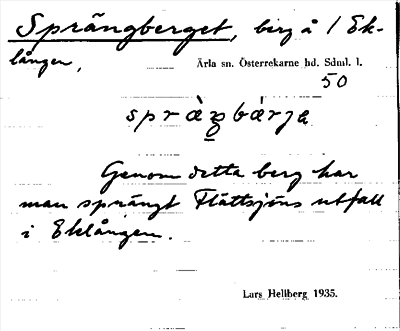 Sprängberget, berg å / Ek-
lången,
Ärla sn. Österrekarne hd. Sdml. l.
50
Genom detta berg har
man sprängt Flättsjöns utfall
i Eklången.
Lars Hellberg 1935.